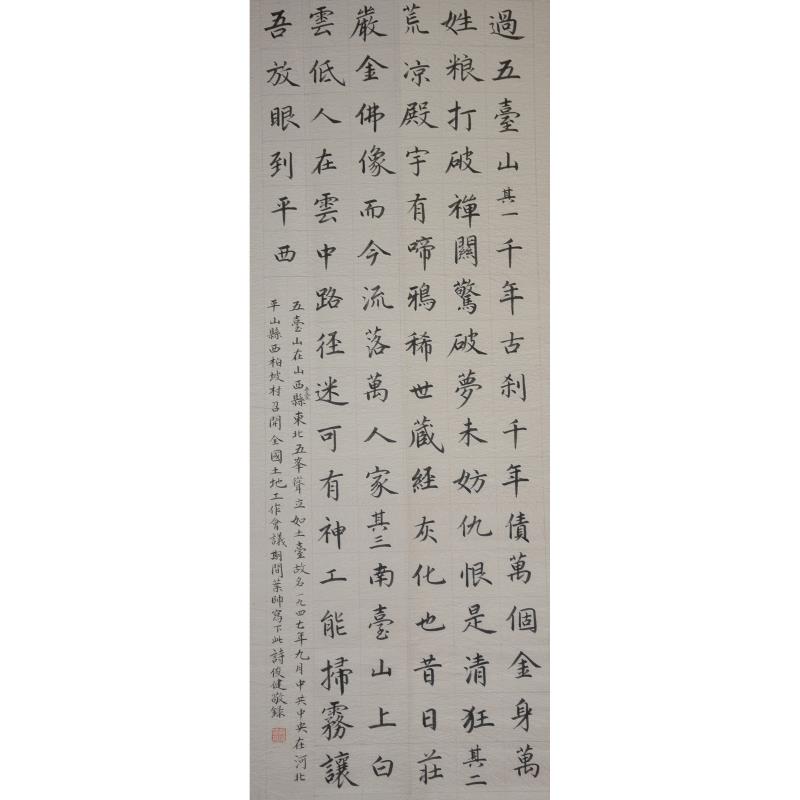 過五臺山其一千年古刹千年債萬個金身萬
姓粮打破禪關驚破夢未妨仇恨是清狂其二
荒凉殿宇有啼鴉稀世蔵経灰化也昔日莊
嚴金佛像而今流落萬人家其三南臺山上白
雲低人在雲中路径迷可有神工能掃霧讓
吾放眼到平西
五臺山在山西五臺縣東北五峯聳立如土臺故名一九四七年九月中共中央在河北
平山縣西柏坡村召開全國土地工作會議期間葉帥寫下此詩俊健敬錄